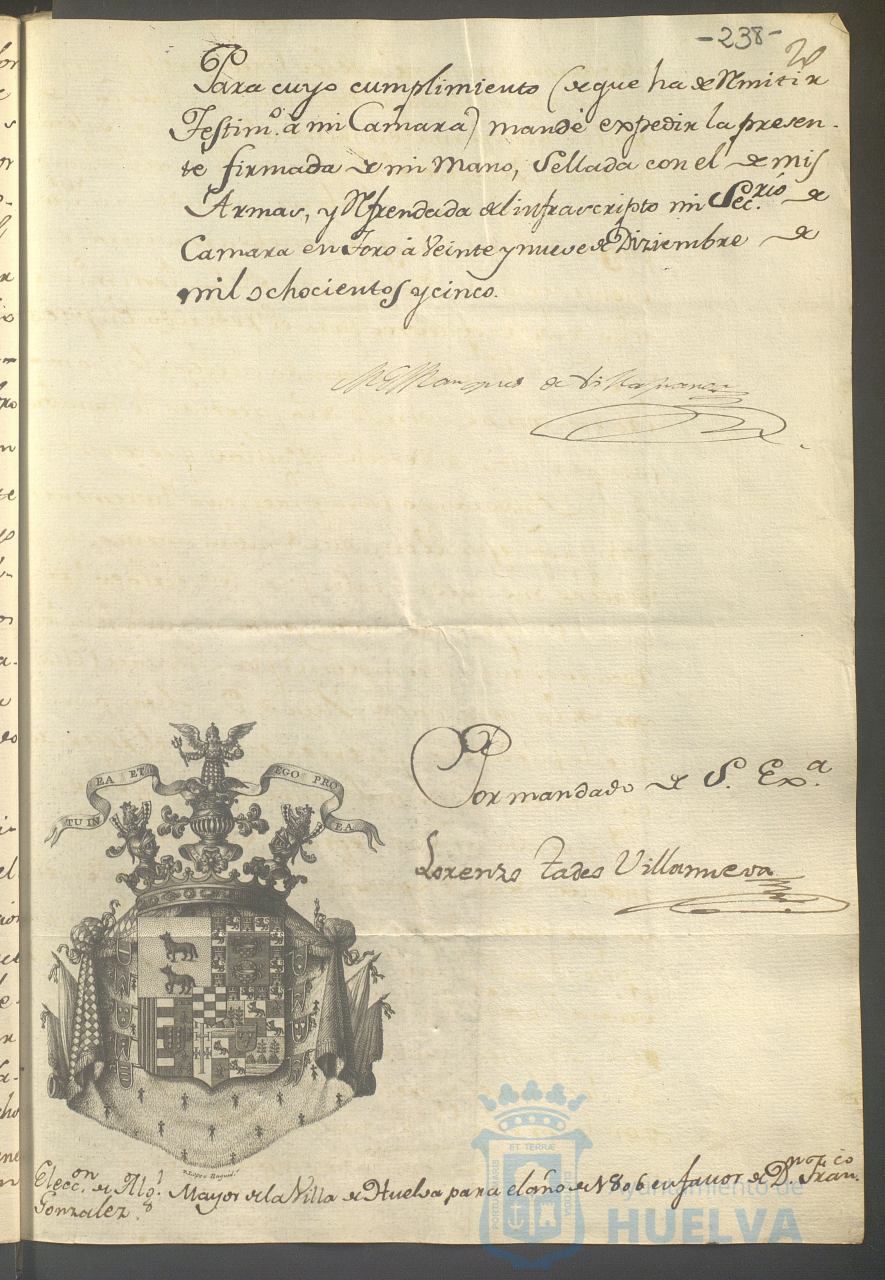 -238-
Para cuyo cumplimiento (de que ha de Rmitir
Testim.º á mi Camara) mandé expedir la presen-
te firmada de mi Mano, Sellada con el de mis
Armas, y Rfrendada del infrascripto mi Sec.rio de
Camara en Toro á Veinte y nueve de Diziembre de
mil ochocientos y cinco.
El Marques de Villafranca
Por mandado de S. Ex.ª
Lorenzo Tadeo Villanueva
TU IN EA ET EGO PRO EA
Elecc.on de Alg.l Mayor de la Villa de Huelva para el año de 1806 en favor de D.n Fran.co
Gonzalez.
ET TERRAE
Ayuntamiento de
HUELVA